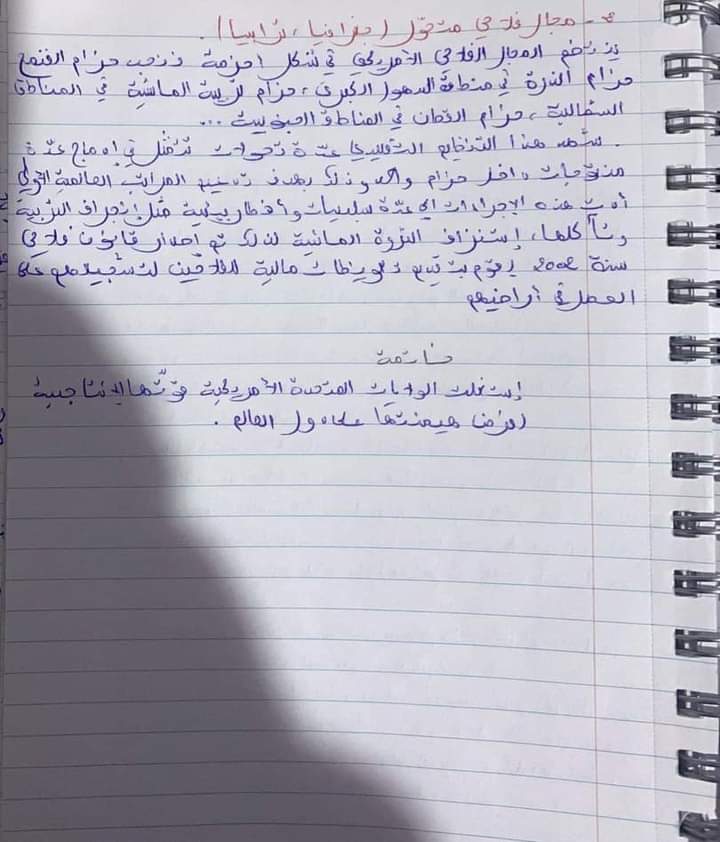 - مجال فلاحي متحول (جغرافيا، ترابيا).
ينتظم المجال الفلاحي الأمريكي في شكل أحزمة فنجد حزام القمح
حزام الذرة في منطقة السهول الكبرى، حزام تربية الماشية في المناطق
الشمالية، حزام القطن في المناطق الجنوبية ...
. شهد هذا التنظيم التقليدي عدة تحولات تتمثل في إدماج عدة
منتوجات داخل حزام واحد وذلك بهدف تصدر المراتب العالمية الأولى
أدت هذه الإجراءات إلى عدة سلبيات وأخطار بيئية مثل إنجراف التربية
وتآكلها، إستنزاف الثروة المائية لذلك تم إصدار قانون فلاحي
سنة 2002 يقوم بتقديم تعويضات مالية للفلاحين لتشجيعهم على
العمل في أراضيهم
خاتمة
إستغلت الولايات المتحدة الأمريكية قوتها الإنتاجية
لفرض هيمنتها على دول العالم .